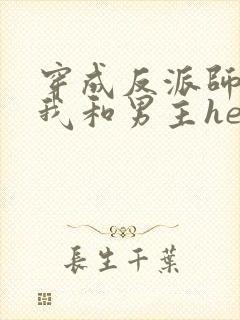 穿成反派師
我和男主he
長生千葉